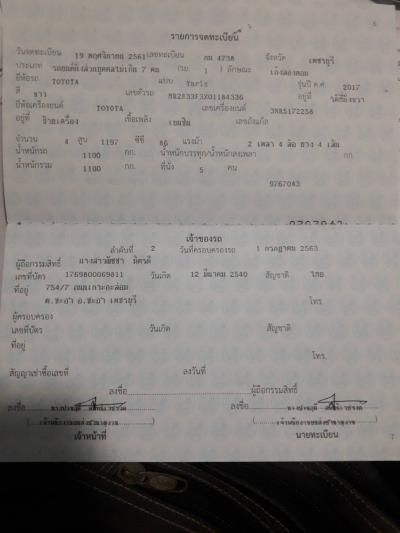 6
รายการจดทะเบียน
วันจดทะเบียน 19 พฤศจิกายน 2561 เลขทะเบียน กม 4738 จังหวัด เพชรบุรี
ประเภท รถยนต์นั่งส่วนบุคคลไม่เกิน 7 คน (รย. 1) ลักษณะ เก๋งสองตอน
ยี่ห้อรถ TOYOTA แบบ Yaris รุ่นปี ค.ศ. 2017
สี ขาว เลขตัวรถ อยู่ที่
ยี่ห้อเครื่องยนต์ TOYOTA เลขเครื่องยนต์ 3NR5172258
อยู่ที่ ข้างเครื่อง เชื้อเพลิง เบนซิน เลขถังแก๊ส
จำนวน 4 สูบ 1197 ซีซี 86 แรงม้า 2 เพลา 4 ล้อ ยาง 4 เส้น
น้ำหนักรถ 1100 กก. น้ำหนักบรรทุก/น้ำหนักลงเพลา กก.
น้ำหนักรวม 1100 กก. ที่นั่ง 5 คน
9767043
เจ้าของรถ
ลำดับที่ 2 วันที่ครอบครองรถ 1 กรกฎาคม 2563
ผู้ถือกรรมสิทธิ์ นางสาว
เลขที่บัตร 1769800069811 วันเกิด 12 มีนาคม 2540 สัญชาติ ไทย
ที่อยู่ 754/7 ถนน
ต.ชะอำ อ.ชะอำ เพชรบุรี โทร.
ผู้ครอบครอง
เลขที่บัตร วันเกิด สัญชาติ
ที่อยู่
โทร.
สัญญาเช่าซื้อเลขที่ ลงวันที่
ลงชื่อ ผู้ถือกรรมสิทธิ์
ลงชื่อ ลงชื่อ
เจ้าหน้าที่ นายทะเบียน
7